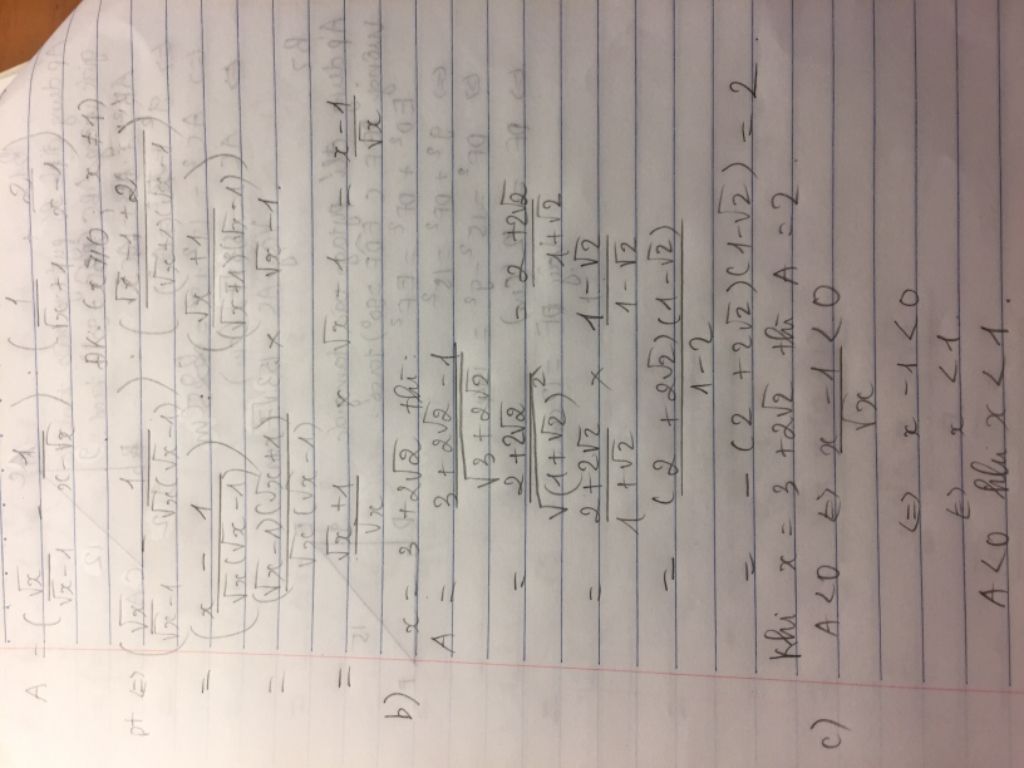 A = (√x/(√x-1) - 1/(x-√x)) : (1/(√x+1) + 2/(x-1))
ĐKXĐ (x>0, x≠1)
pt ⇔ (√x/(√x-1) - 1/(√x(√x-1))) : ((√x-1+2)/((√x+1)(√x-1)))
= ((x-1)/(√x(√x-1))) : ((√x+1)/((√x+1)(√x-1)))
= ((√x-1)(√x+1))/(√x(√x-1)) × √x-1
= (√x+1)/√x × √x-1 = (x-1)/√x
b) x = 3+2√2 thì:
A = (3+2√2-1)/√(3+2√2)
= (2+2√2)/√((1+√2)²) = (2+2√2)/(1+√2)
= (2+2√2)/(1+√2) × (1-√2)/(1-√2)
= ((2+2√2)(1-√2))/(1-2)
= -(2+2√2)(1-√2) = 2
Khi x = 3+2√2 thì A = 2
c) A<0 ⇔ (x-1)/√x < 0
⇔ x-1<0
⇔ x<1
A<0 khi x<1.